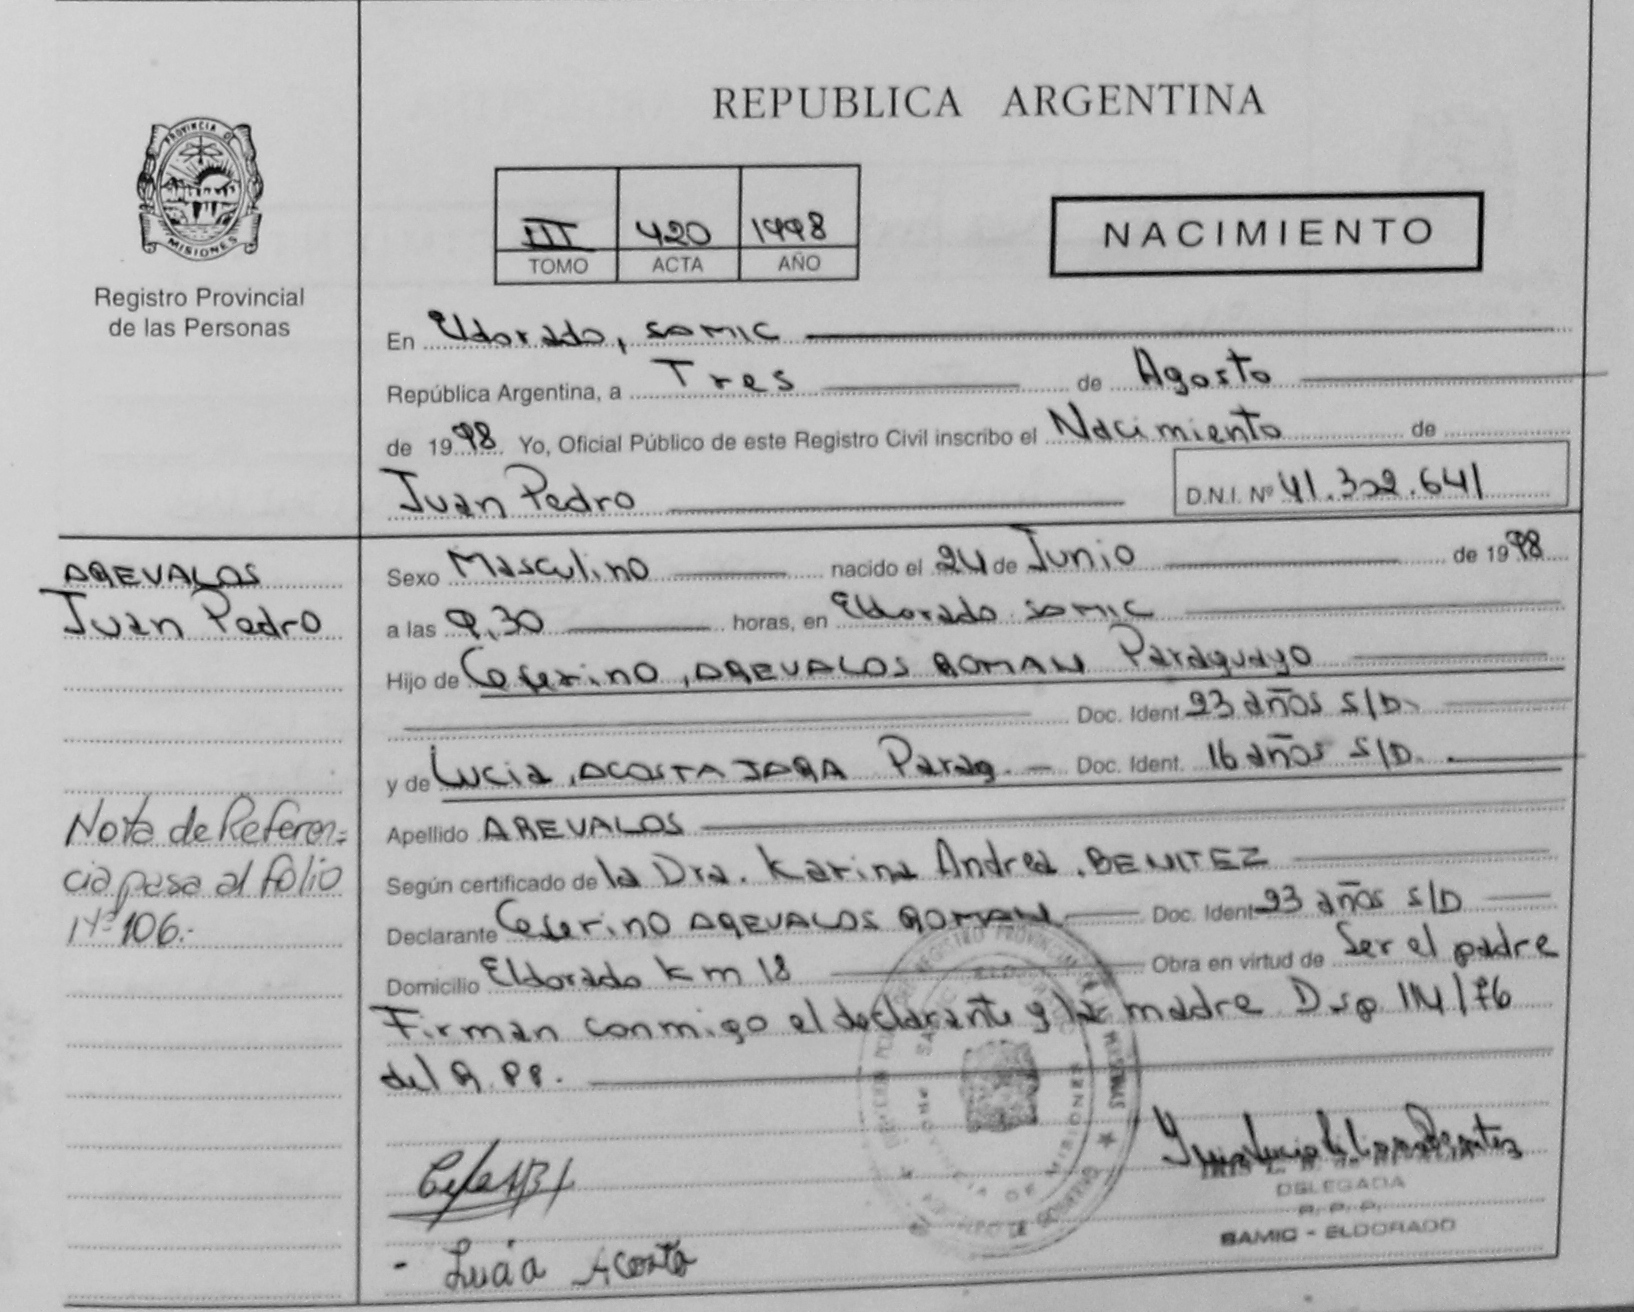 PROVINCIA DE
MISIONES
Registro Provincial
de las Personas
REPUBLICA ARGENTINA
III 420 1998
TOMO ACTA AÑO
NACIMIENTO
En Eldorado, SAMIC
República Argentina, a Tres de Agosto
de 1998 Yo, Oficial Público de este Registro Civil inscribo el Nacimiento de
Juan Pedro D.N.I. Nº 41.322.641
AREVALOS
Juan Pedro
Nota de Referen=
cia pasa al folio
Nº 106.-
Sexo Masculino nacido el 24 de Junio de 1998
a las 9,30 horas, en Eldorado SAMIC
Hijo de Ceferino, AREVALOS ROMAN Paraguayo
Doc. Ident. 23 años S/D.
y de Lucia, ACOSTA JARA Parag. Doc. Ident. 16 años S/D.
Apellido AREVALOS
Según certificado de la Dra. Karina Andrea, BENITEZ
Declarante Ceferino AREVALOS ROMAN Doc. Ident. 23 años S/D
Domicilio Eldorado km 18 Obra en virtud de Ser el padre
Firman conmigo el declarante y la madre Disp 114/76
del R.PP.
Lucia Acosta
DELEGADA
R. P. P.
SAMIC - ELDORADO